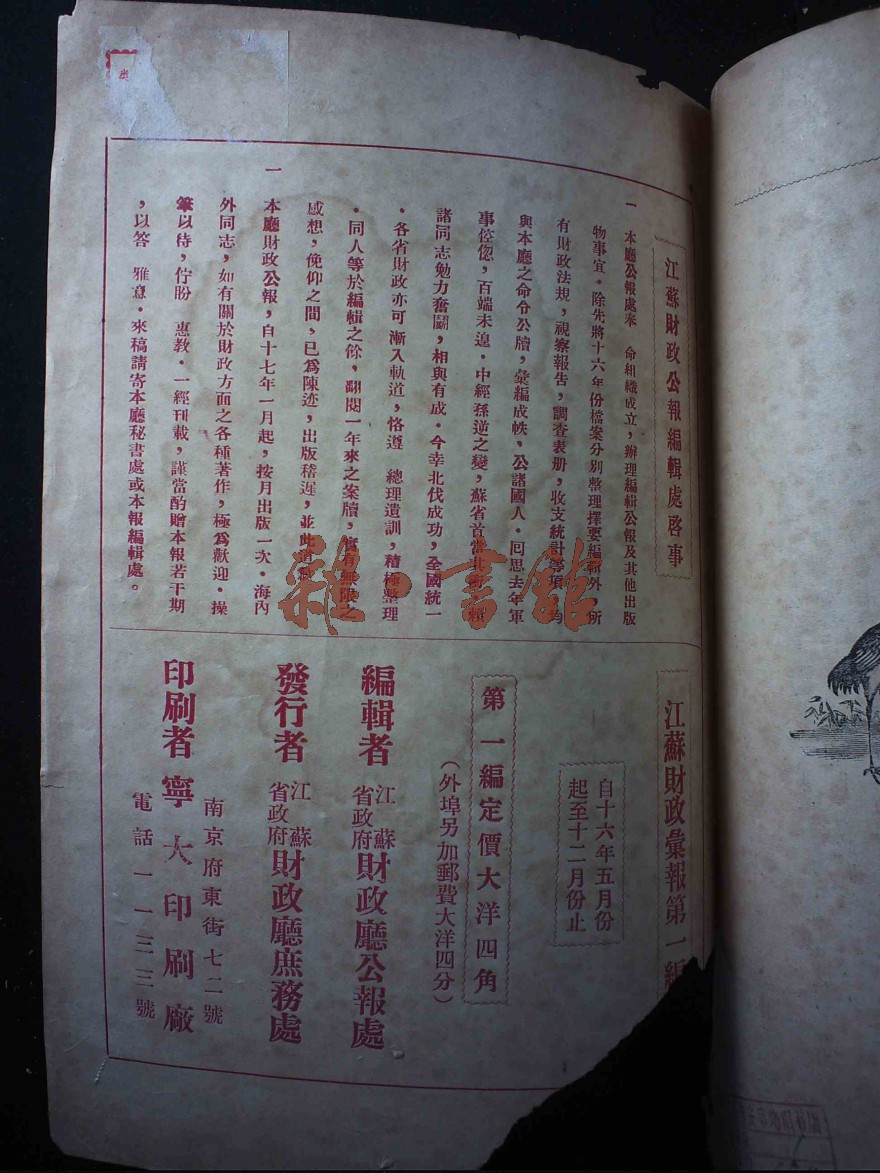 江蘇財政公報編輯處啓事
一 本廳公報處奉 命組織成立，辦理編輯公報及其他出版
物事宜。除先將十六年份檔案分別整理擇要編輯外，所
有財政法規，視察報告，調查表册，收支統計等項，均
與本廳之命令公牘，彙編成帙，公諸國人。囘思去年軍
事倥偬，百端未遑。中經孫逆之變，蘇省首當其衝，賴
諸同志勉力奮鬭，相與有成。今幸北伐成功，全國統一
。各省財政亦可漸入軌道，恪遵 總理遺訓，積極整理
。同人等於編輯之餘，翻閱一年來之案牘，實有無限之
感想，俛仰之間，已爲陳迹，出版稽遲，並此道歉
一 本廳財政公報，自十七年一月起，按月出版一次。海內
外同志，如有關於財政方面之各種著作，極爲歡迎。操
筆以待，佇盼 惠敎。一經刊載，謹當酌贈本報若干期
，以答 雅意。來稿請寄本廳秘書處或本報編輯處。
江蘇財政彙報第一編
自十六年五月份
起至十二月份止
第一編定價大洋四角
（外埠另加郵費大洋四分）
編輯者 江蘇省政府財政廳公報處
發行者 江蘇省政府財政廳庶務處
印刷者 寧大印刷廠
南京府東街七二號
電話一一三三號
雜·書館